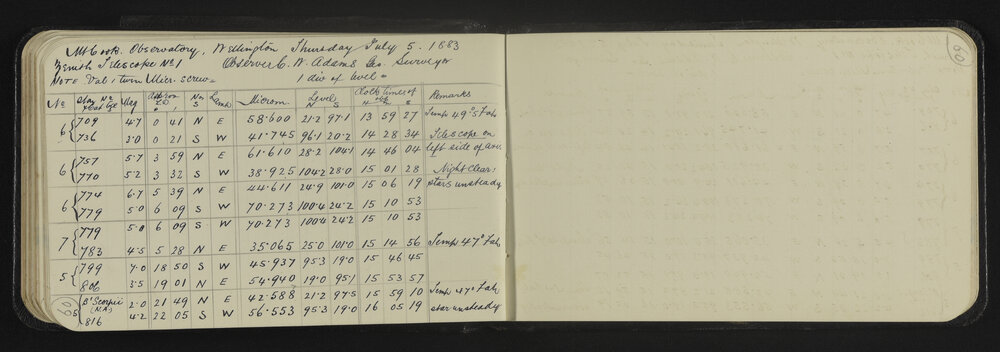 Mt Cook. Observatory, Wellington Thursday July 5. 1883
Zenith Telescope No 1 Observer C. W. Adams Geo. Surveyor
NOTE. Val: 1 turn Micr. screw = 1 div of level =
No Star No Mag Approx ZD N or S Lamp Microm. Levels N S Clock times of obs H m s Remarks
6 { 709 4.7 0 41 N E 58.600 21.2 97.1 13 59 27 Temp 49°.5 Fah
736 3.0 0 21 S W 41.745 96.1 20.2 14 28 34 Telescope on
6 { 757 5.7 3 59 N E 61.610 28.2 104.1 14 46 04 left side of
770 5.2 3 32 S W 38.925 104.2 28.0 15 01 28 Night clear;
6 { 774 6.7 5 39 N E 44.611 24.9 101.0 15 06 19 stars unsteady
779 5.0 6 09 S W 70.273 100.4 24.2 15 10 53
7 { 779 5.0 6 09 S W 70.273 100.4 24.2 15 10 53
783 4.5 5 28 N E 35.065 25.0 101.0 15 14 56 Temp 47° Fah
5 { 799 7.0 18 50 S W 45.937 95.3 19.0 15 46 45
806 3.5 19 01 N E 54.940 19.0 95.1 15 53 57
5 { B' Scorpii (N.A.) 2.0 21 49 N E 42.588 21.2 97.5 15 59 10 Temp 47° Fah
816 4.2 22 05 S W 56.553 95.3 19.0 16 05 19 star unsteady
60